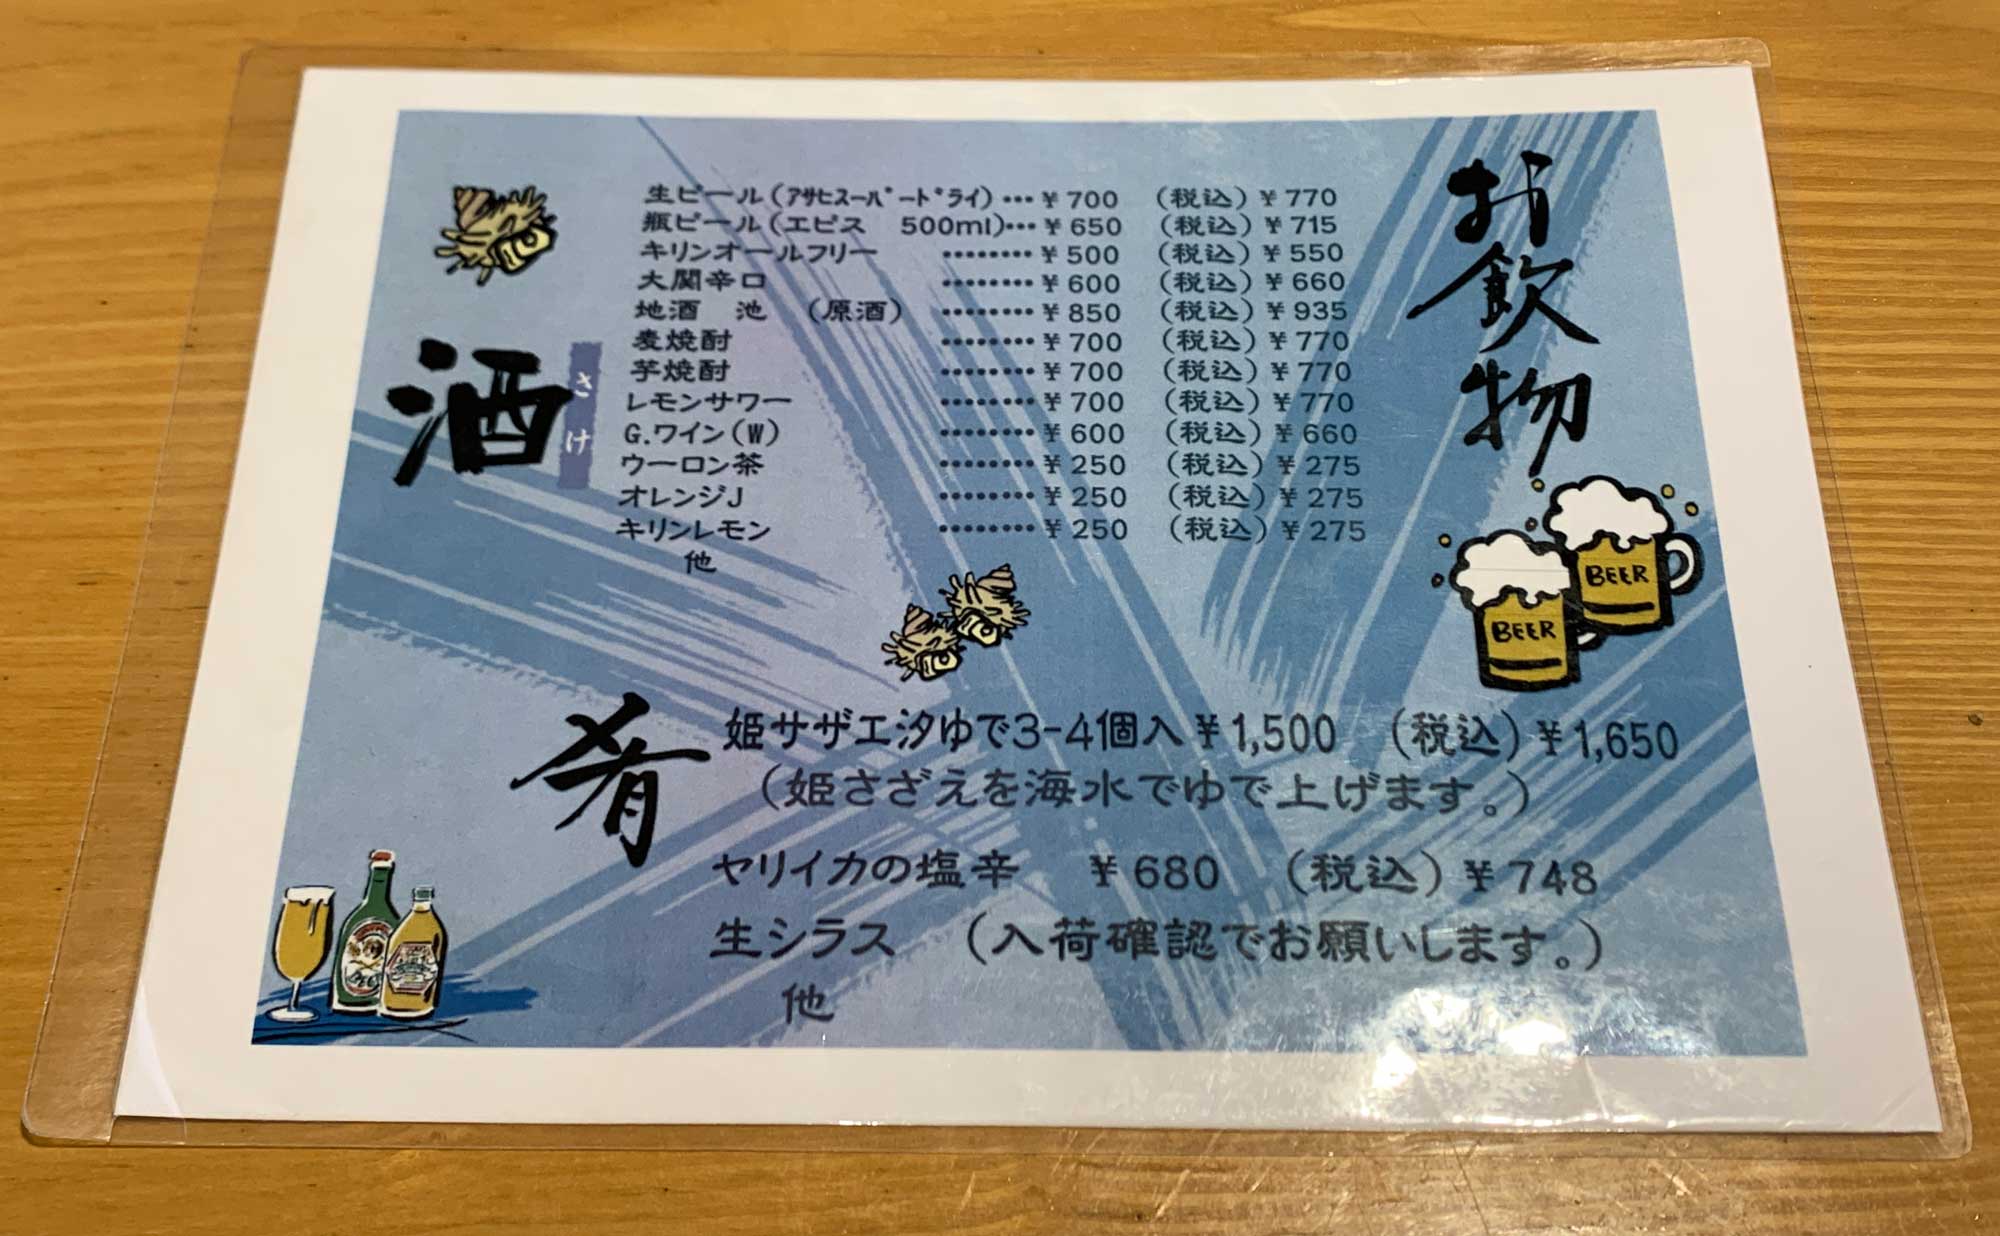 お飲物
酒
さけ
生ビール(ｱｻﾋｽｰﾊﾟｰﾄﾞﾗｲ)…￥700 (税込)￥770
瓶ビール(エビス 500ml)…￥650 (税込)￥715
キリンオールフリー ………￥500 (税込)￥550
大関辛口 ………￥600 (税込)￥660
地酒 池 (原酒) ………￥850 (税込)￥935
麦焼酎 ………￥700 (税込)￥770
芋焼酎 ………￥700 (税込)￥770
レモンサワー ………￥700 (税込)￥770
G.ワイン(W) ………￥600 (税込)￥660
ウーロン茶 ………￥250 (税込)￥275
オレンジJ ………￥250 (税込)￥275
キリンレモン ………￥250 (税込)￥275
他
BEER
BEER
肴
姫サザエ汐ゆで3-4個入￥1,500 (税込)￥1,650
(姫さざえを海水でゆで上げます。)
ヤリイカの塩辛 ￥680 (税込)￥748
生シラス (入荷確認でお願いします。)
他